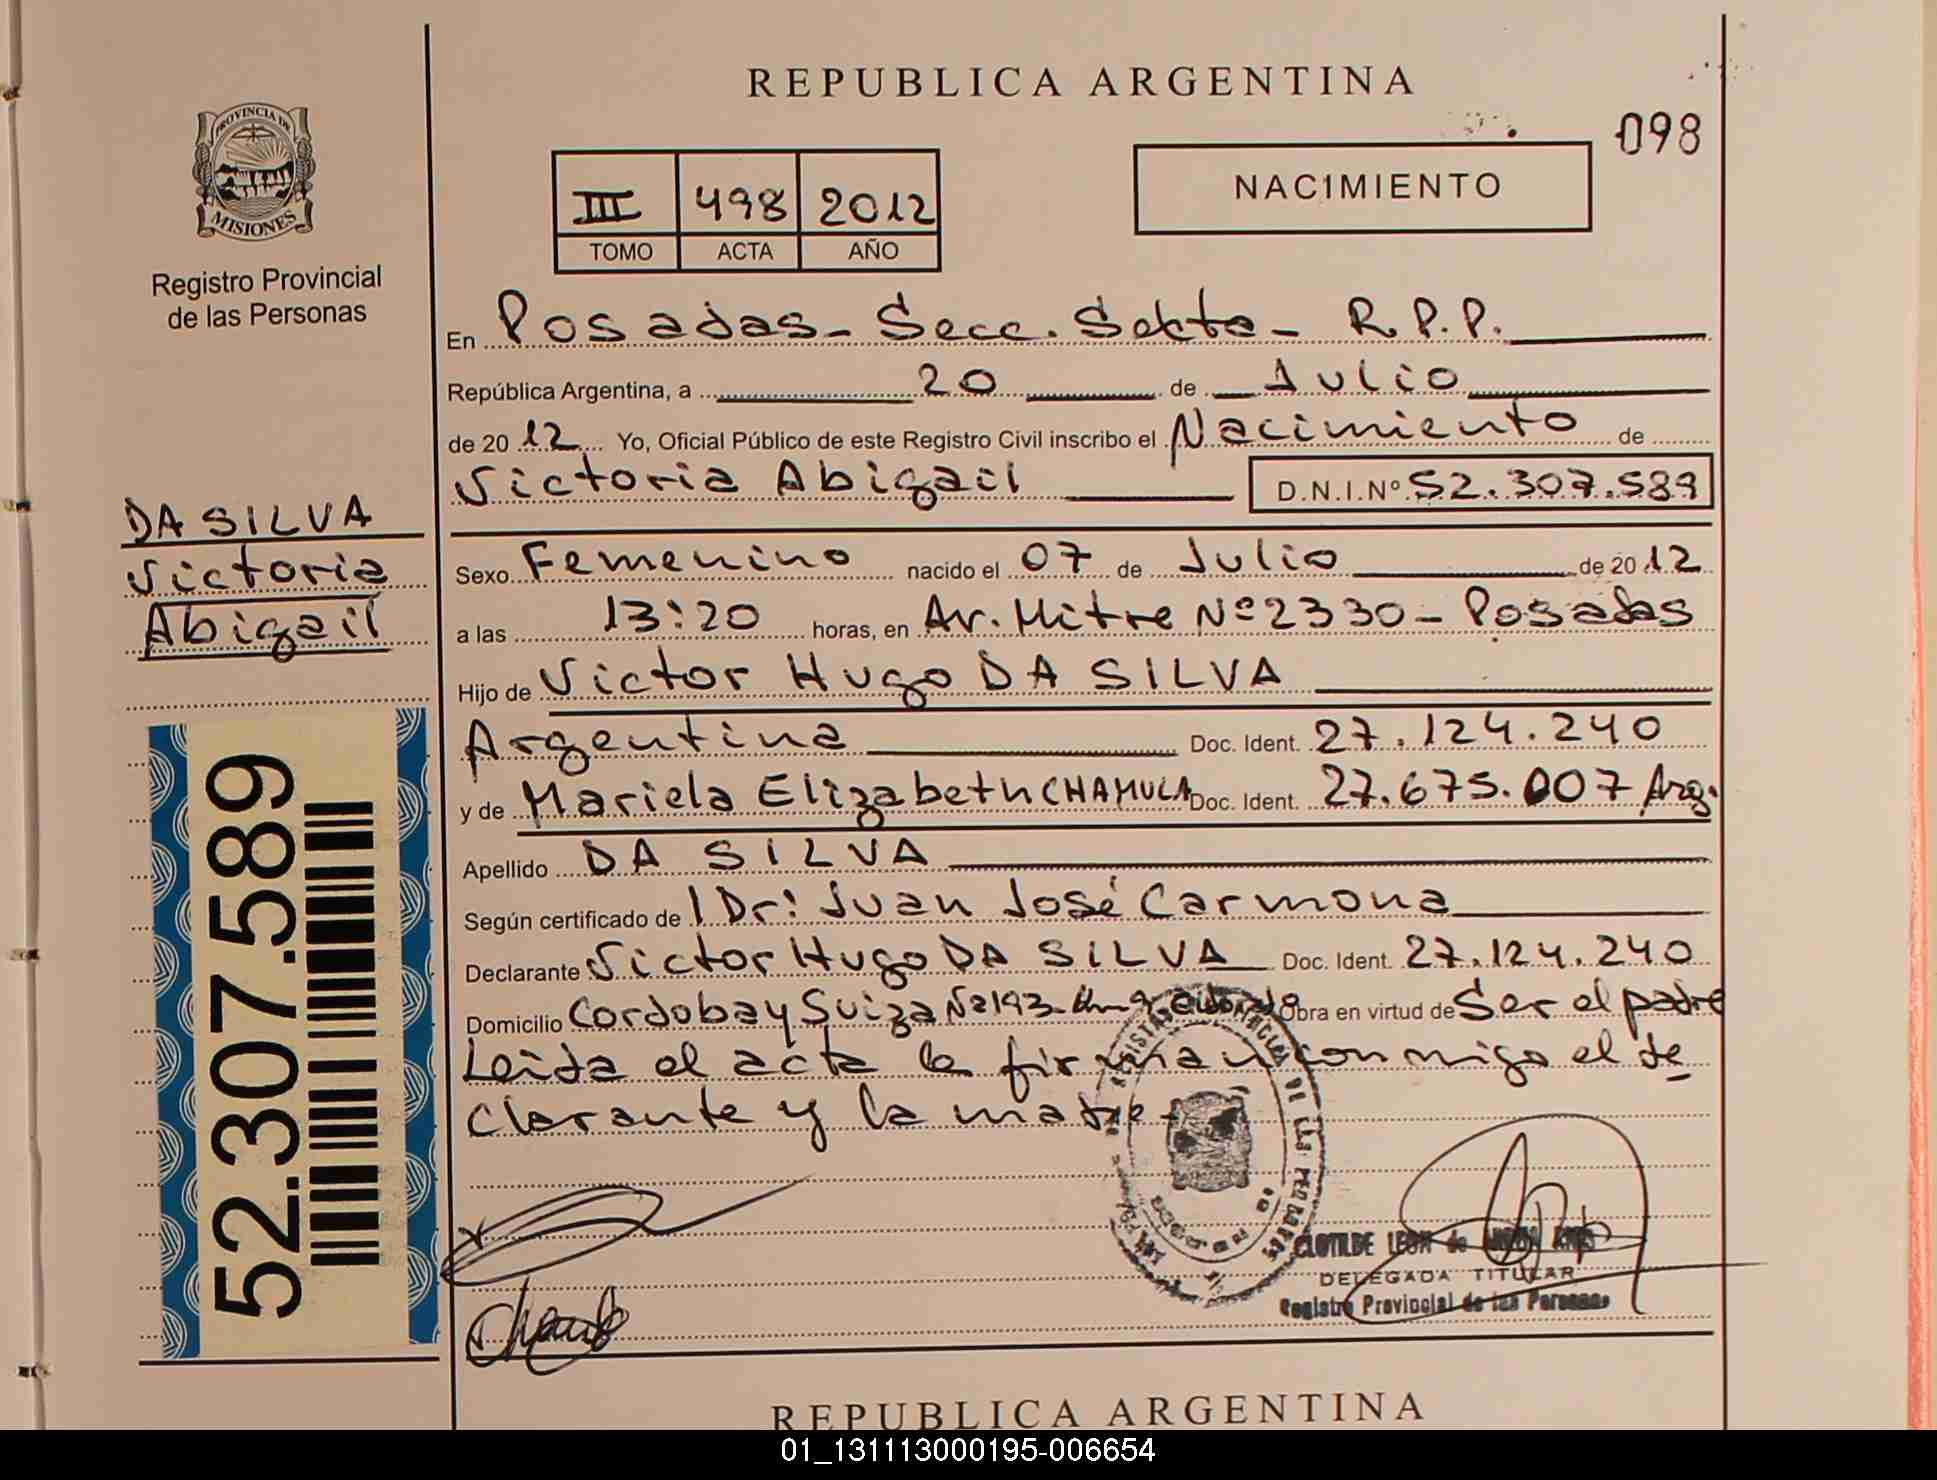 REPUBLICA ARGENTINA
098
PROVINCIA DE
MISIONES
Registro Provincial
de las Personas
III 498 2012
TOMO ACTA AÑO
NAC1MIENTO
En Posadas - Secc. Sexta - R.P.P.
República Argentina, a 20 de Julio
de 2012 Yo, Oficial Público de este Registro Civil inscribo el Nacimiento de
Victoria Abigail D.N.I.Nº 52.307.589
DA SILVA
Victoria
Abigail
Sexo Femenino nacido el 07 de Julio de 2012
a las 13:20 horas, en Av. Mitre Nº 2330 - Posadas
Hijo de Victor Hugo DA SILVA
Argentina Doc. Ident. 27.124.240
y de Mariela Elizabeth CHAMULA Doc. Ident. 27.675.007 Arg.
Apellido DA SILVA
Según certificado de l Dr: Juan José Carmona
Declarante Victor Hugo DA SILVA Doc. Ident. 27.124.240
Domicilio Cordoba y Suiza Nº 193 Obra en virtud de Ser el padre
Leida el acta la firman conmigo el de
clarante y la madre -
52.307.589
REGISTRO PROVINCIAL DE LAS PERSONAS
CLOTILDE LEON de
DELEGADA TITULAR
Registro Provincial de las Personas
REPUBLICA ARGENTINA
01_131113000195-006654